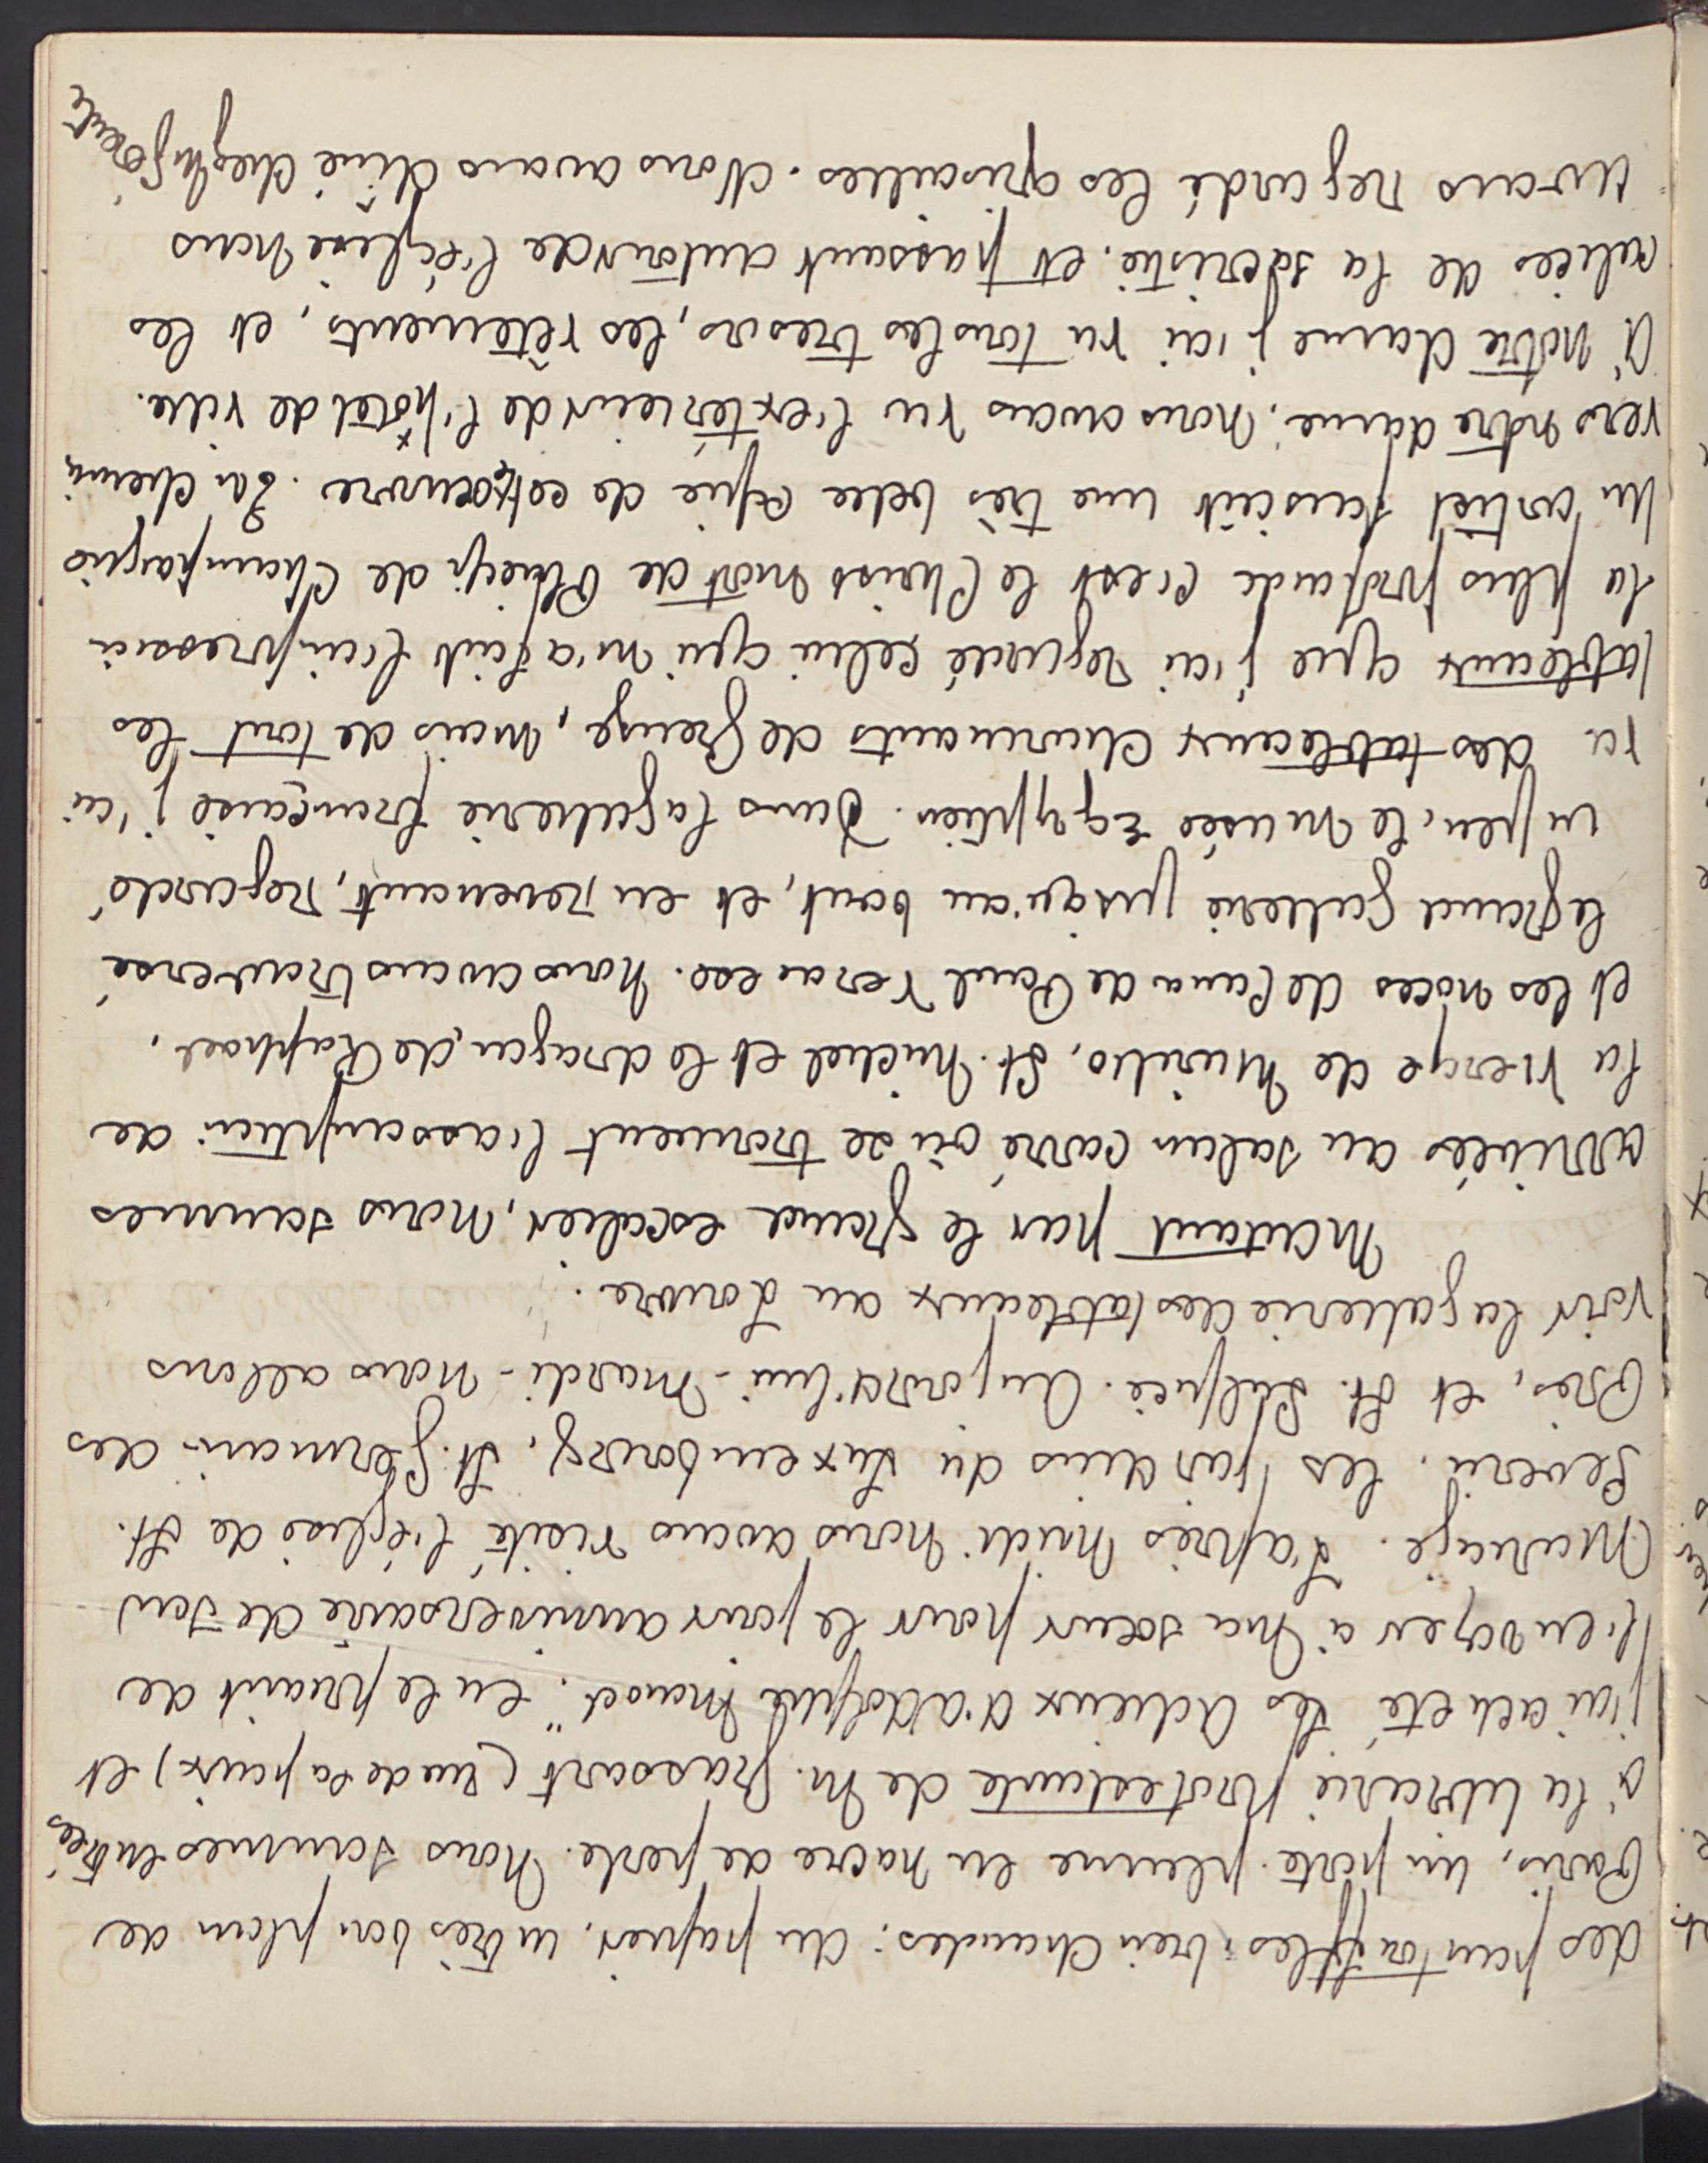 des pantouffles bien chaudes: du papier, un très bon plan de
Paris, un porte-plume en nacre de perle. Nous sommes entrées
à la librarie protestante de M. Grassart (rue de la paix) et
j'ai acheté "Les Adieux d'Adolphe Monod" en le priant de
l'envoyer à ma soeur pour le jour anniversaire de son
Mariage. L'après midi nous avons visité l'église de St.
Severin, les jardins du Luxembourg, St. Germain-des
Près, et St. Sulpice. Aujourd'hui - Mardi - nous allons
voir la gallerie des tableaux au Louvre.
Montant par le grand escalier, nous sommes
arrivées au salon carré où se trouvent l'assomption de
la vierge de Murillo, St. Michel et le dragon, de Raphael,
et les noces de Cana de Paul Veronese. Nous avons traversé
le grand gallerie jusqu'au bout, et en revenant, regardé
un peu, le musée Egyptien. Dans la gallerie française j'ai
vu des tableaux charmants de Greuze, mais de tout les
tableaux que j'ai regardé celui qui m'a fait l'impression
la plus profonde c'est le Christ mort de Philip de Champagne
Un artist faisait une très belle copie de cet oeuvre. En chemin
vers Notre dame, nous avons vu l'exterieur de l'hôtel de ville.
A Notre dame j'ai vu tous les tresors, les vêtements, et les
calices de la sacristie, et passant autour de l'église nous
avons regardé les grisailles. Nous avons diné chez